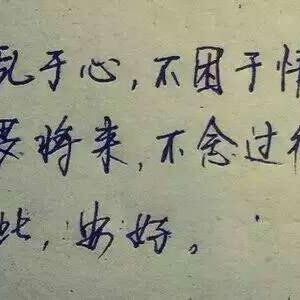 乱于心,不困于情
将来,不念过往
此,安好。